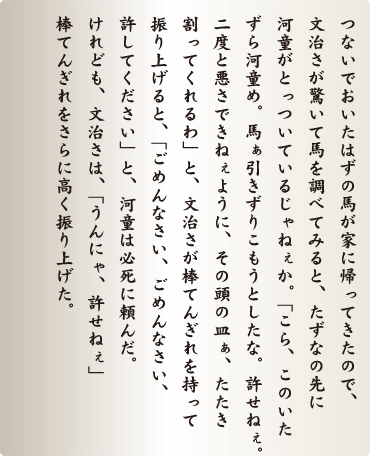 つないでおいたはずの馬が家に帰ってきたので、
文治さが驚いて馬を調べてみると、たずなの先に
河童がとっついているじゃねぇか。「こら、このいた
ずら河童め。馬ぁ引きずりこもうとしたな。許せねぇ。
二度と悪さできねぇように、その頭の皿ぁ、たたき
割ってくれるわ」と、文治さが棒てんぎれを持って
振り上げると、「ごめんなさい、ごめんなさい、
許してください」と、河童は必死に頼んだ。
けれども、文治さは、「うんにゃ、許せねぇ」
棒てんぎれをさらに高く振り上げた。